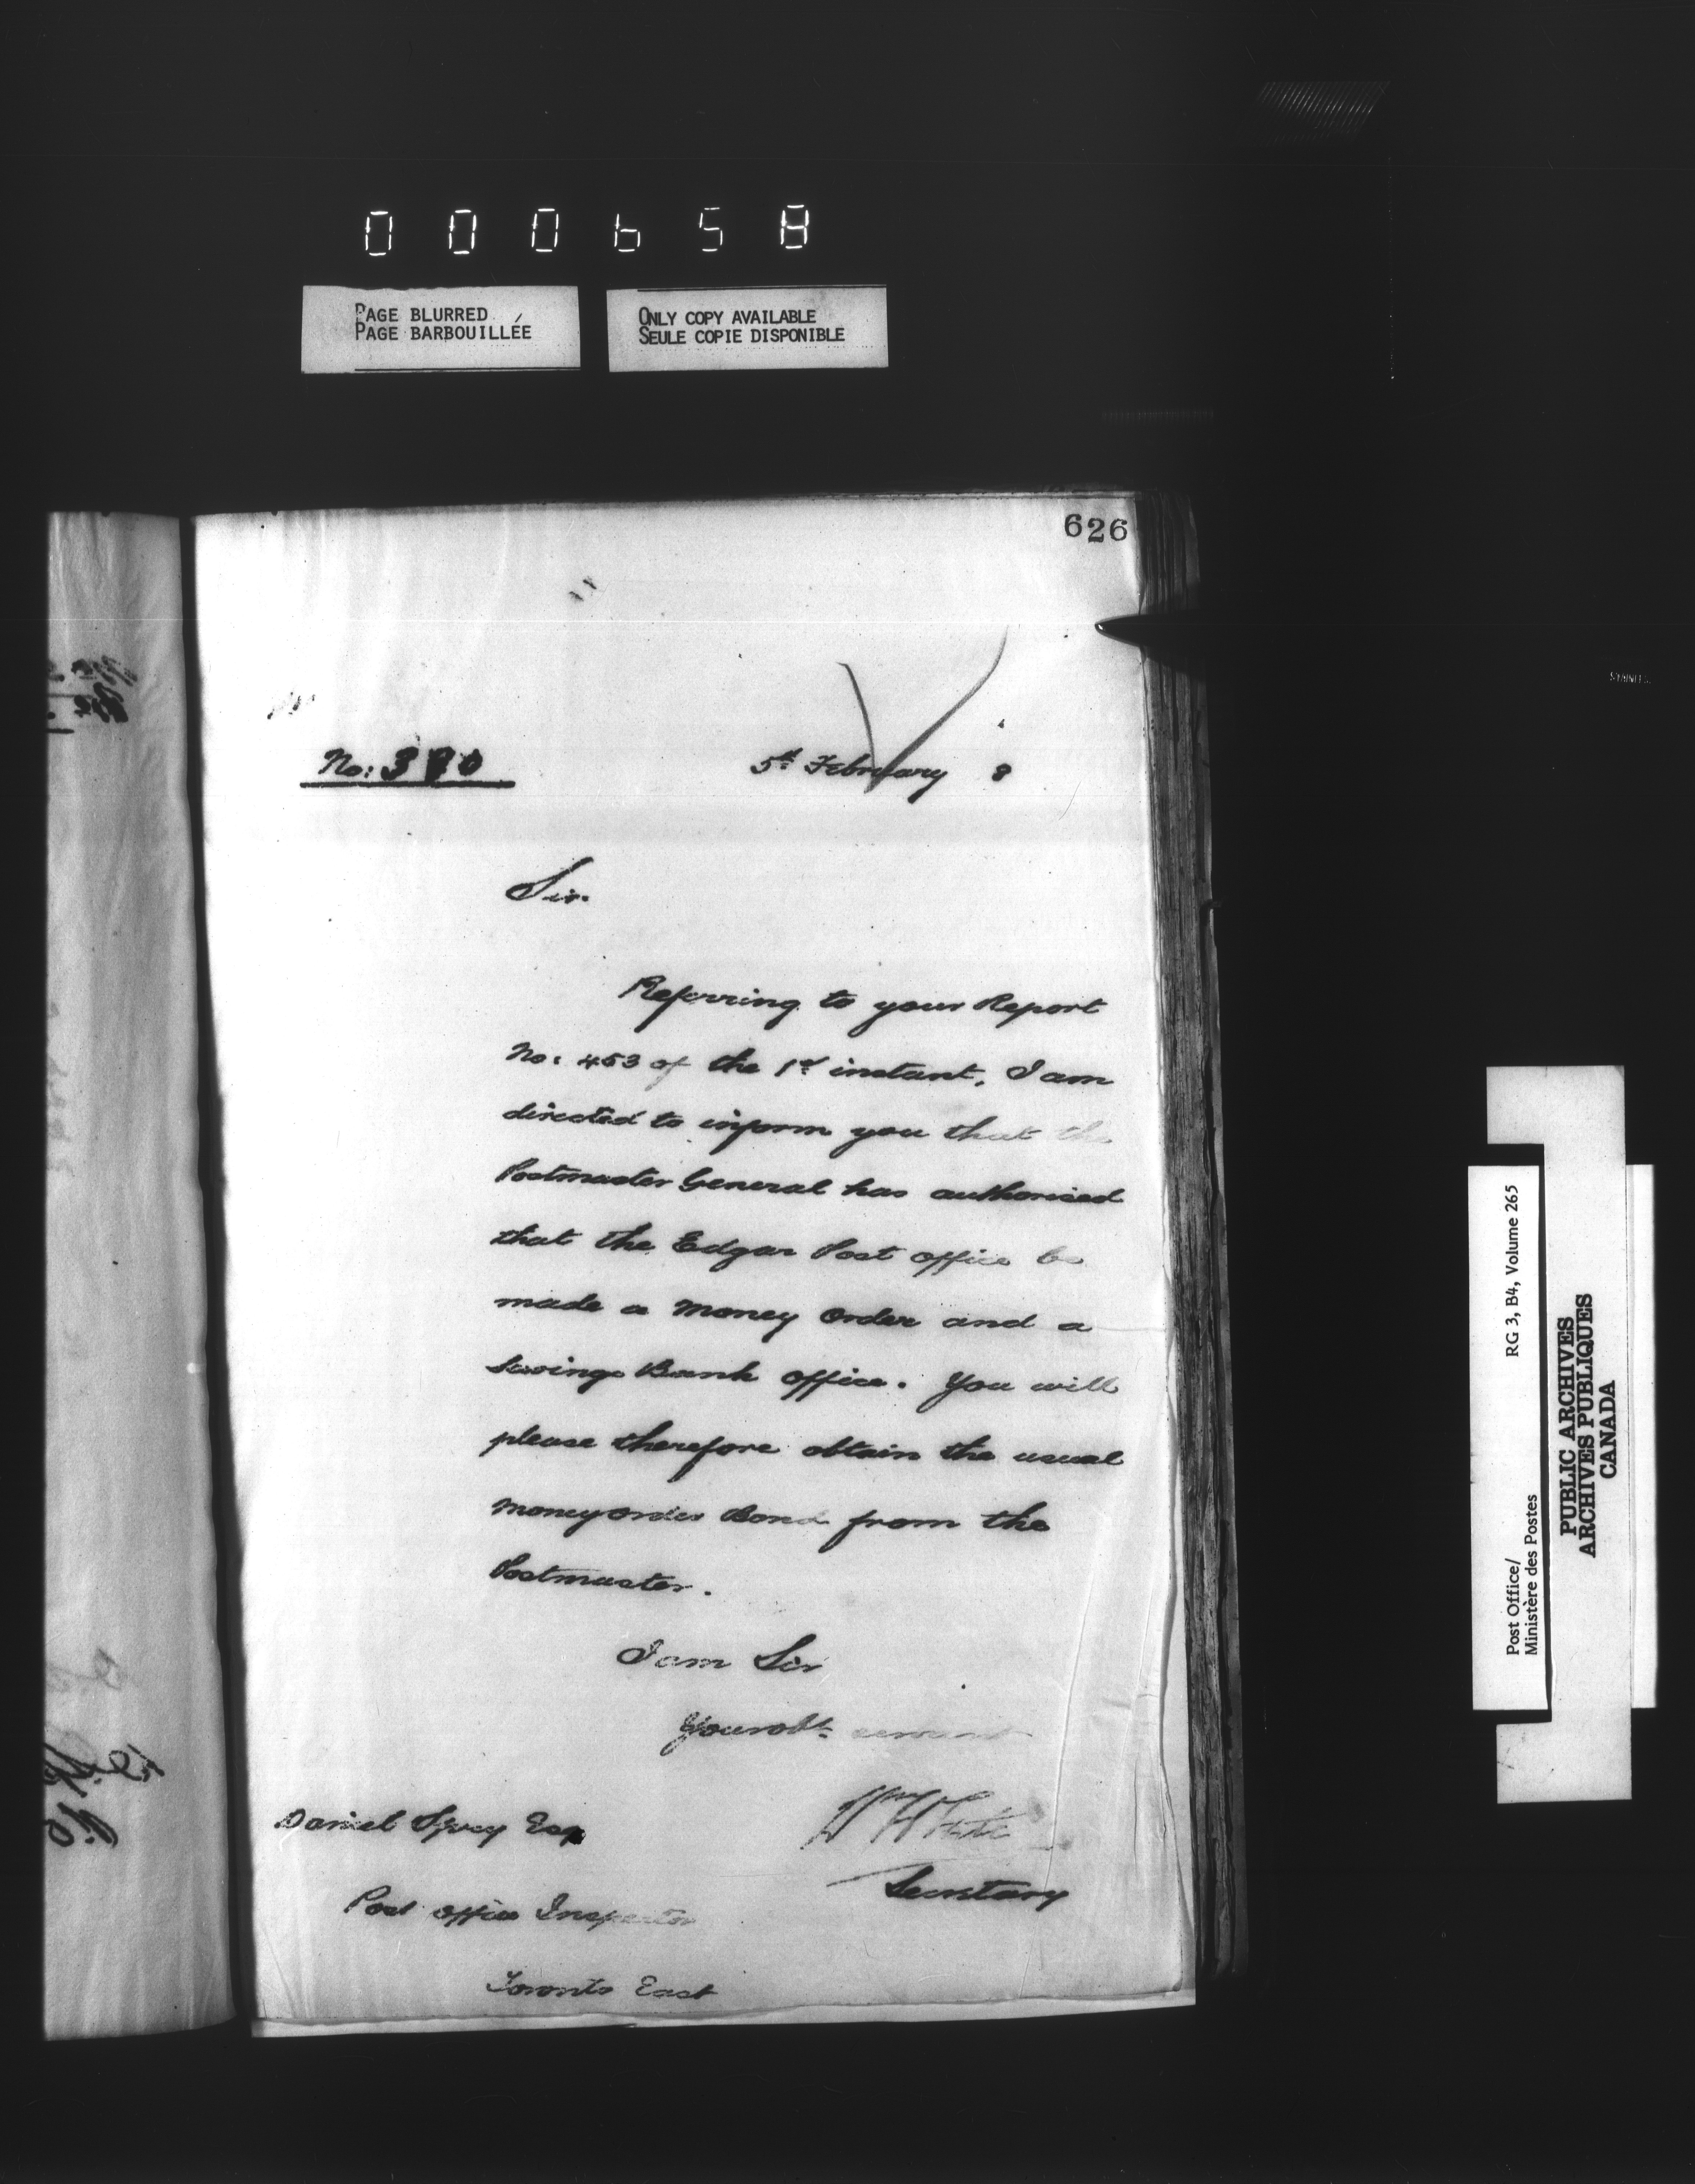 000658
PAGE BLURRED
PAGE BARBOUILLÉE
ONLY COPY AVAILABLE
SEULE COPIE DISPONIBLE
626
No: 380
5th February 8
Sir.
Referring to your Report
No: 453 of the 1st instant, I am
directed to inform you that the
Postmaster General has authorised
that the Edgar Post office be
made a Money Order and a
Savings Bank Office. You will
please therefore obtain the usual
Money Order Bond from the
Postmaster.
I am Sir
Your obt. servant
Wm White
Secretary
Daniel Spry Esq
Post office Inspector
Toronto East
Post Office/ RG 3, B4, Volume 265
Ministère des Postes
PUBLIC ARCHIVES
ARCHIVES PUBLIQUES
CANADA